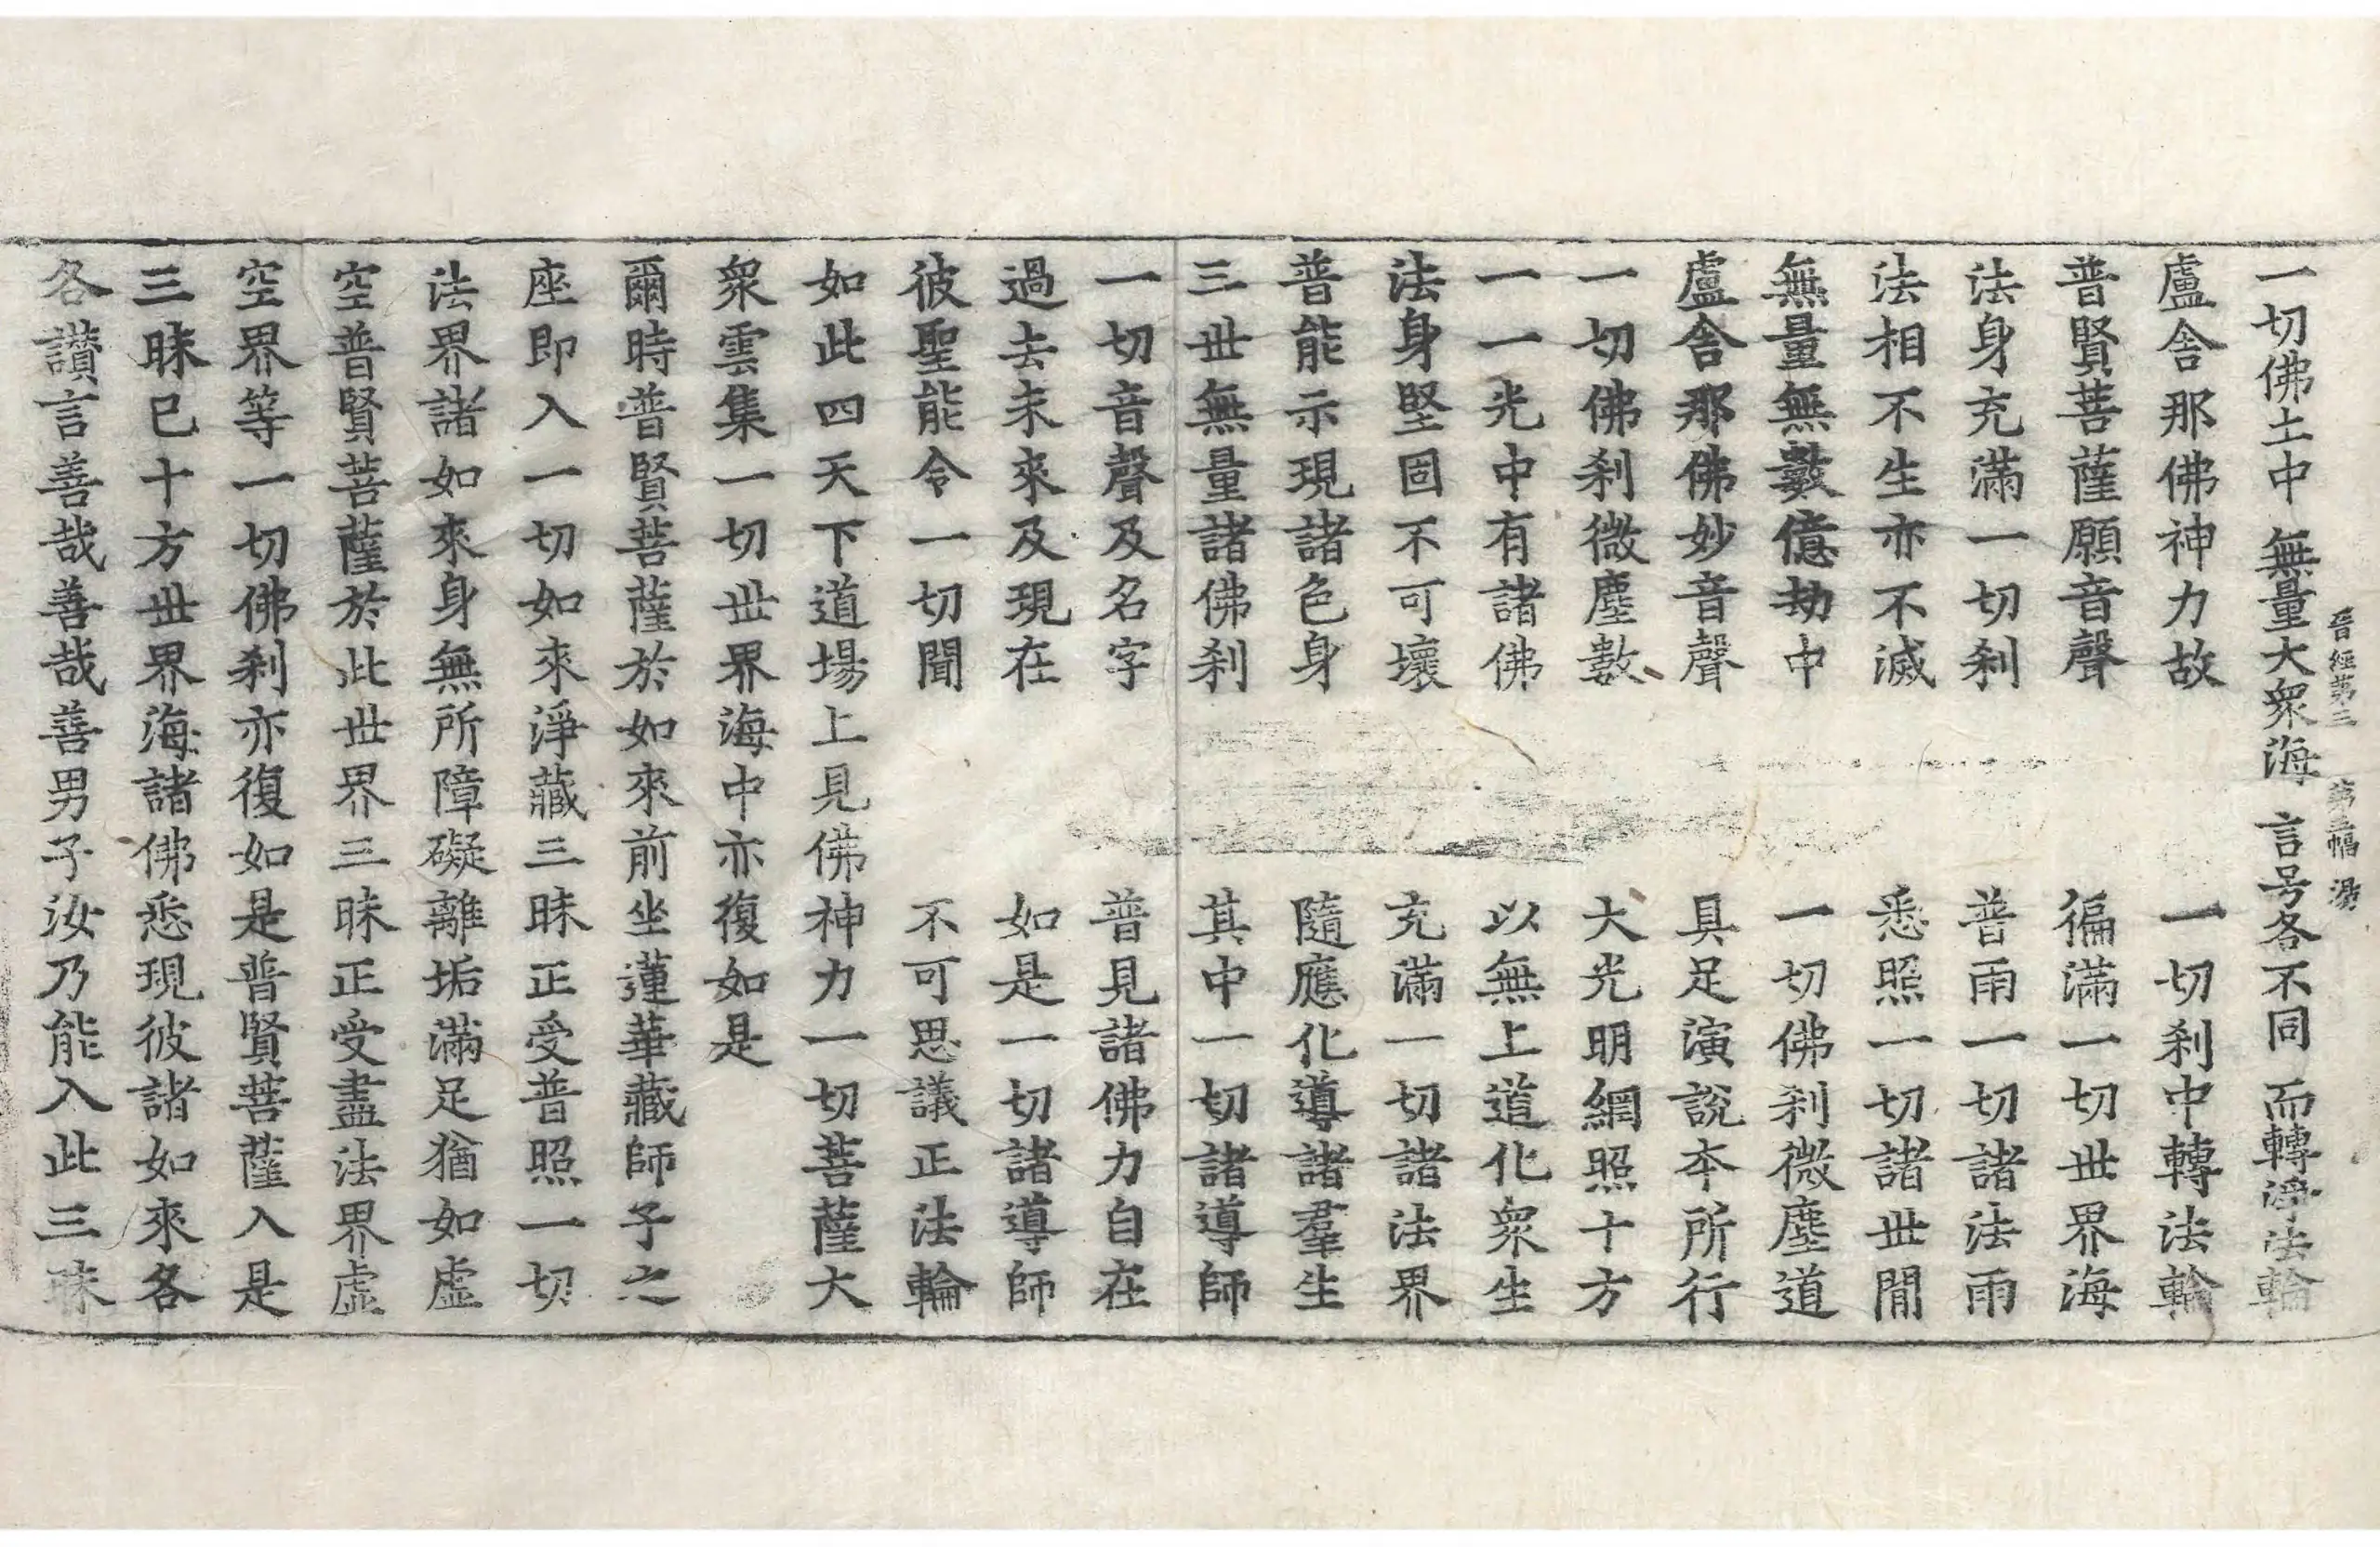 晉經第三　第三幅　湯
一切佛土中　無量大衆海　言号各不同　而轉淨法輪
盧舍那佛神力故　一切刹中轉法輪
普賢菩薩願音聲　徧滿一切世界海
法身充滿一切刹　普雨一切諸法雨
法相不生亦不滅　悉照一切諸世間
無量無數億劫中　一切佛刹微塵道
盧舍那佛妙音聲　具足演說本所行
一切佛刹微塵數　大光明網照十方
一一光中有諸佛　以無上道化衆生
法身堅固不可壞　充滿一切諸法界
普能示現諸色身　隨應化導諸羣生
三世無量諸佛刹　其中一切諸導師
一切音聲及名字　普見諸佛力自在
過去未來及現在　如是一切諸導師
彼聖能令一切聞　不可思議正法輪
如此四天下道場上見佛神力一切菩薩大
衆雲集一切世界海中亦復如是
爾時普賢菩薩於如來前坐蓮華藏師子之
座即入一切如來淨藏三昧正受普照一切
法界諸如來身無所障礙離垢滿足猶如虛
空普賢菩薩於此世界三昧正受盡法界虛
空界等一切佛刹亦復如是普賢菩薩入是
三昧已十方世界海諸佛悉現彼諸如來各
各讃言善哉善哉善男子汝乃能入此三昧